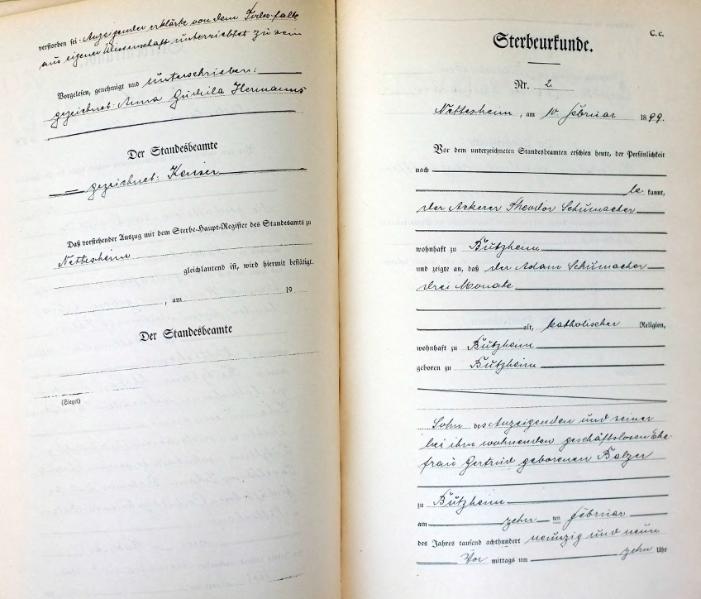 verstorben sei: Anzeigender erklärte von dem Sterbefalle
aus eigener Wissenschaft unterrichtet zu sein
Vorgelesen, genehmigt und unterschrieben:
gezeichnet: Anna Gudula Hermanns
Der Standesbeamte
gezeichnet: Kaiser
Daß vorstehender Auszug mit dem Sterbe-Haupt-Register des Standesamts zu
Nettesheim
gleichlautend ist, wird hiermit bestätigt.
, am 19
Der Standesbeamte
(Siegel)
C. c.
Sterbeurkunde.
Nr. 2
Nettesheim, am 10. Februar 1899.
Vor dem unterzeichneten Standesbeamten erschien heute, der Persönlichkeit
nach
be kannt,
der Ackerer Theodor Schumacher
wohnhaft zu Bützheim
und zeigte an, daß der Adam Schumacher
drei Monate
alt, katholischer Religion,
wohnhaft zu Bützheim
geboren zu Bützheim
Sohn des Anzeigenden und seiner
bei ihm wohnenden geschäftslosen Ehe
frau Gertrud geborenen Balzer
zu Bützheim
am zehn ten Februar
des Jahres tausend achthundert neunzig und neun
Vor mittags um zehn Uhr